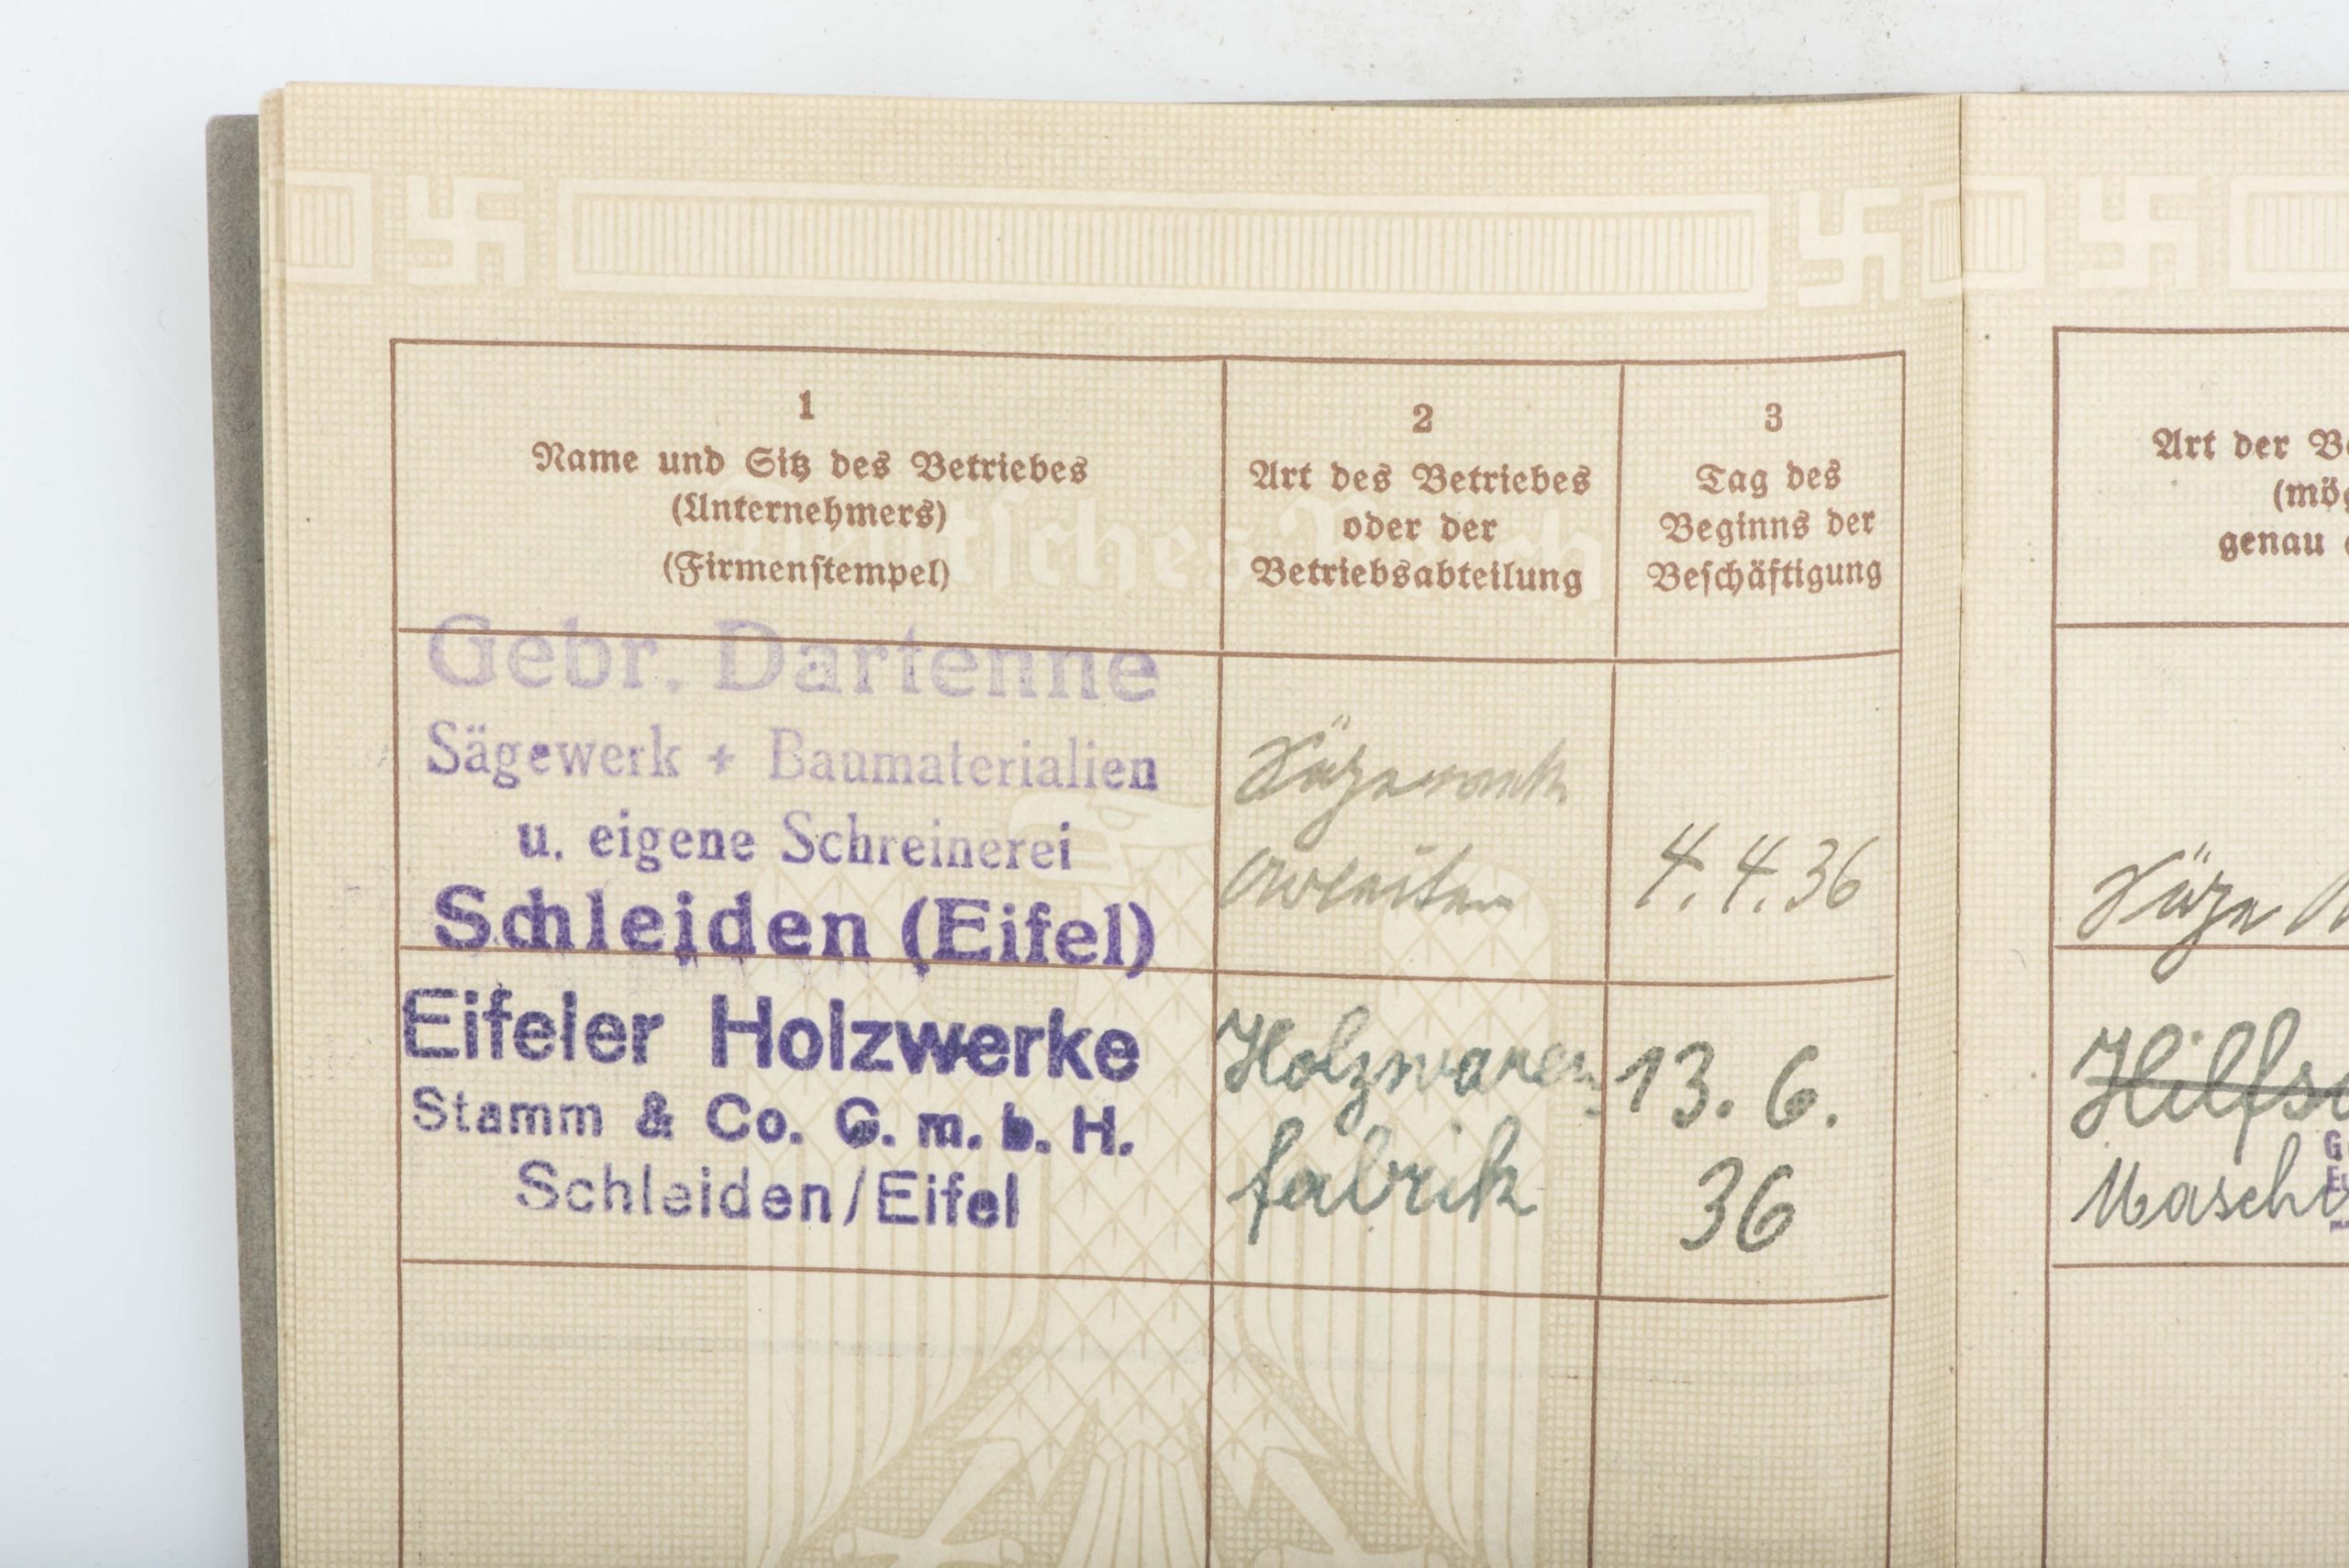 1
Name und Sitz des Betriebes
(Unternehmers)
(Firmenstempel)
2
Art des Betriebes
oder der
Betriebsabteilung
3
Tag des
Beginns der
Beschäftigung
Gebr. Dartenne
Sägewerk + Baumaterialien
u. eigene Schreinerei
Schleiden (Eifel)
Sägewerk
Arbeiten
4.4.36
Eifeler Holzwerke
Stamm & Co. G. m. b. H.
Schleiden/Eifel
Holzwaren
fabrik
13. 6.
36
Art der
genau
Säge